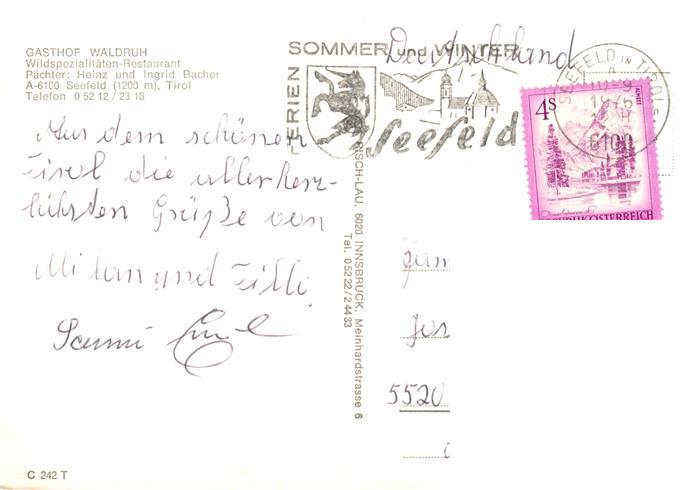 GASTHOF WALDRUH
Wildspezialitäten-Restaurant
Pächter: Heinz und Ingrid Bacher
A-6100 Seefeld (1200 m), Tirol
Telefon 0 52 12 / 23 18
SOMMER und WINTER
FERIEN
Seefeld
Deutschland
SEEFELD IN TIROL
6100
4S
REPUBLIK ÖSTERREICH
Aus dem schönen
Tirol die allerherz-
lichsten Grüße von
Milan und Tilli
RISCH-LAU, 6020 INNSBRUCK, Meinhardstrasse 6
Tel. 0 52 22 / 2 44 33
5520
C 242 T